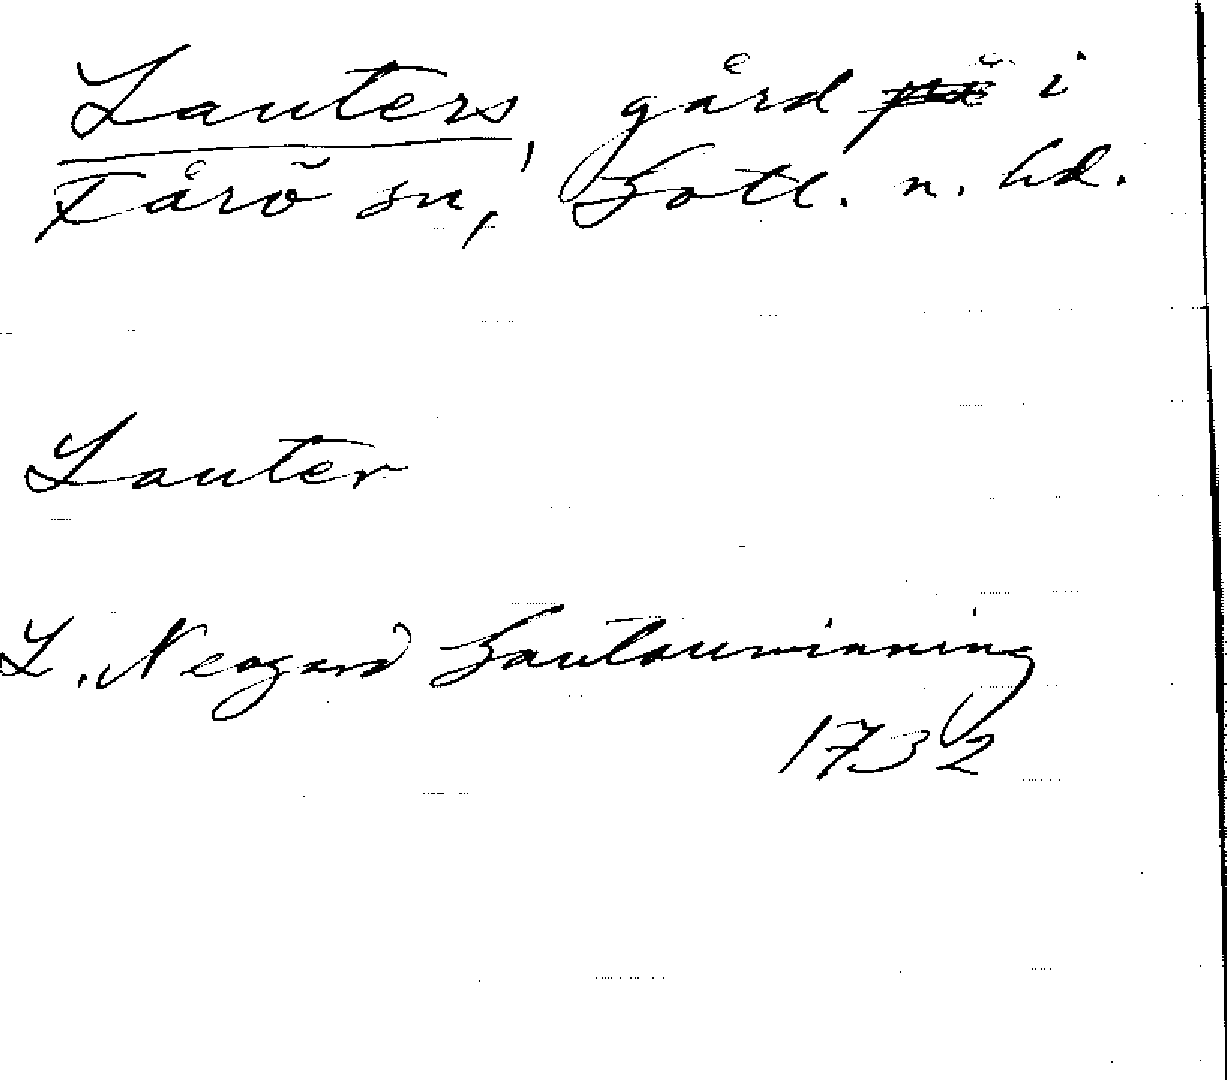 Lauters, gård i
Fårö sn, Gotl. n. hd.
Lauter
L. Neogard Gautauminning
1732